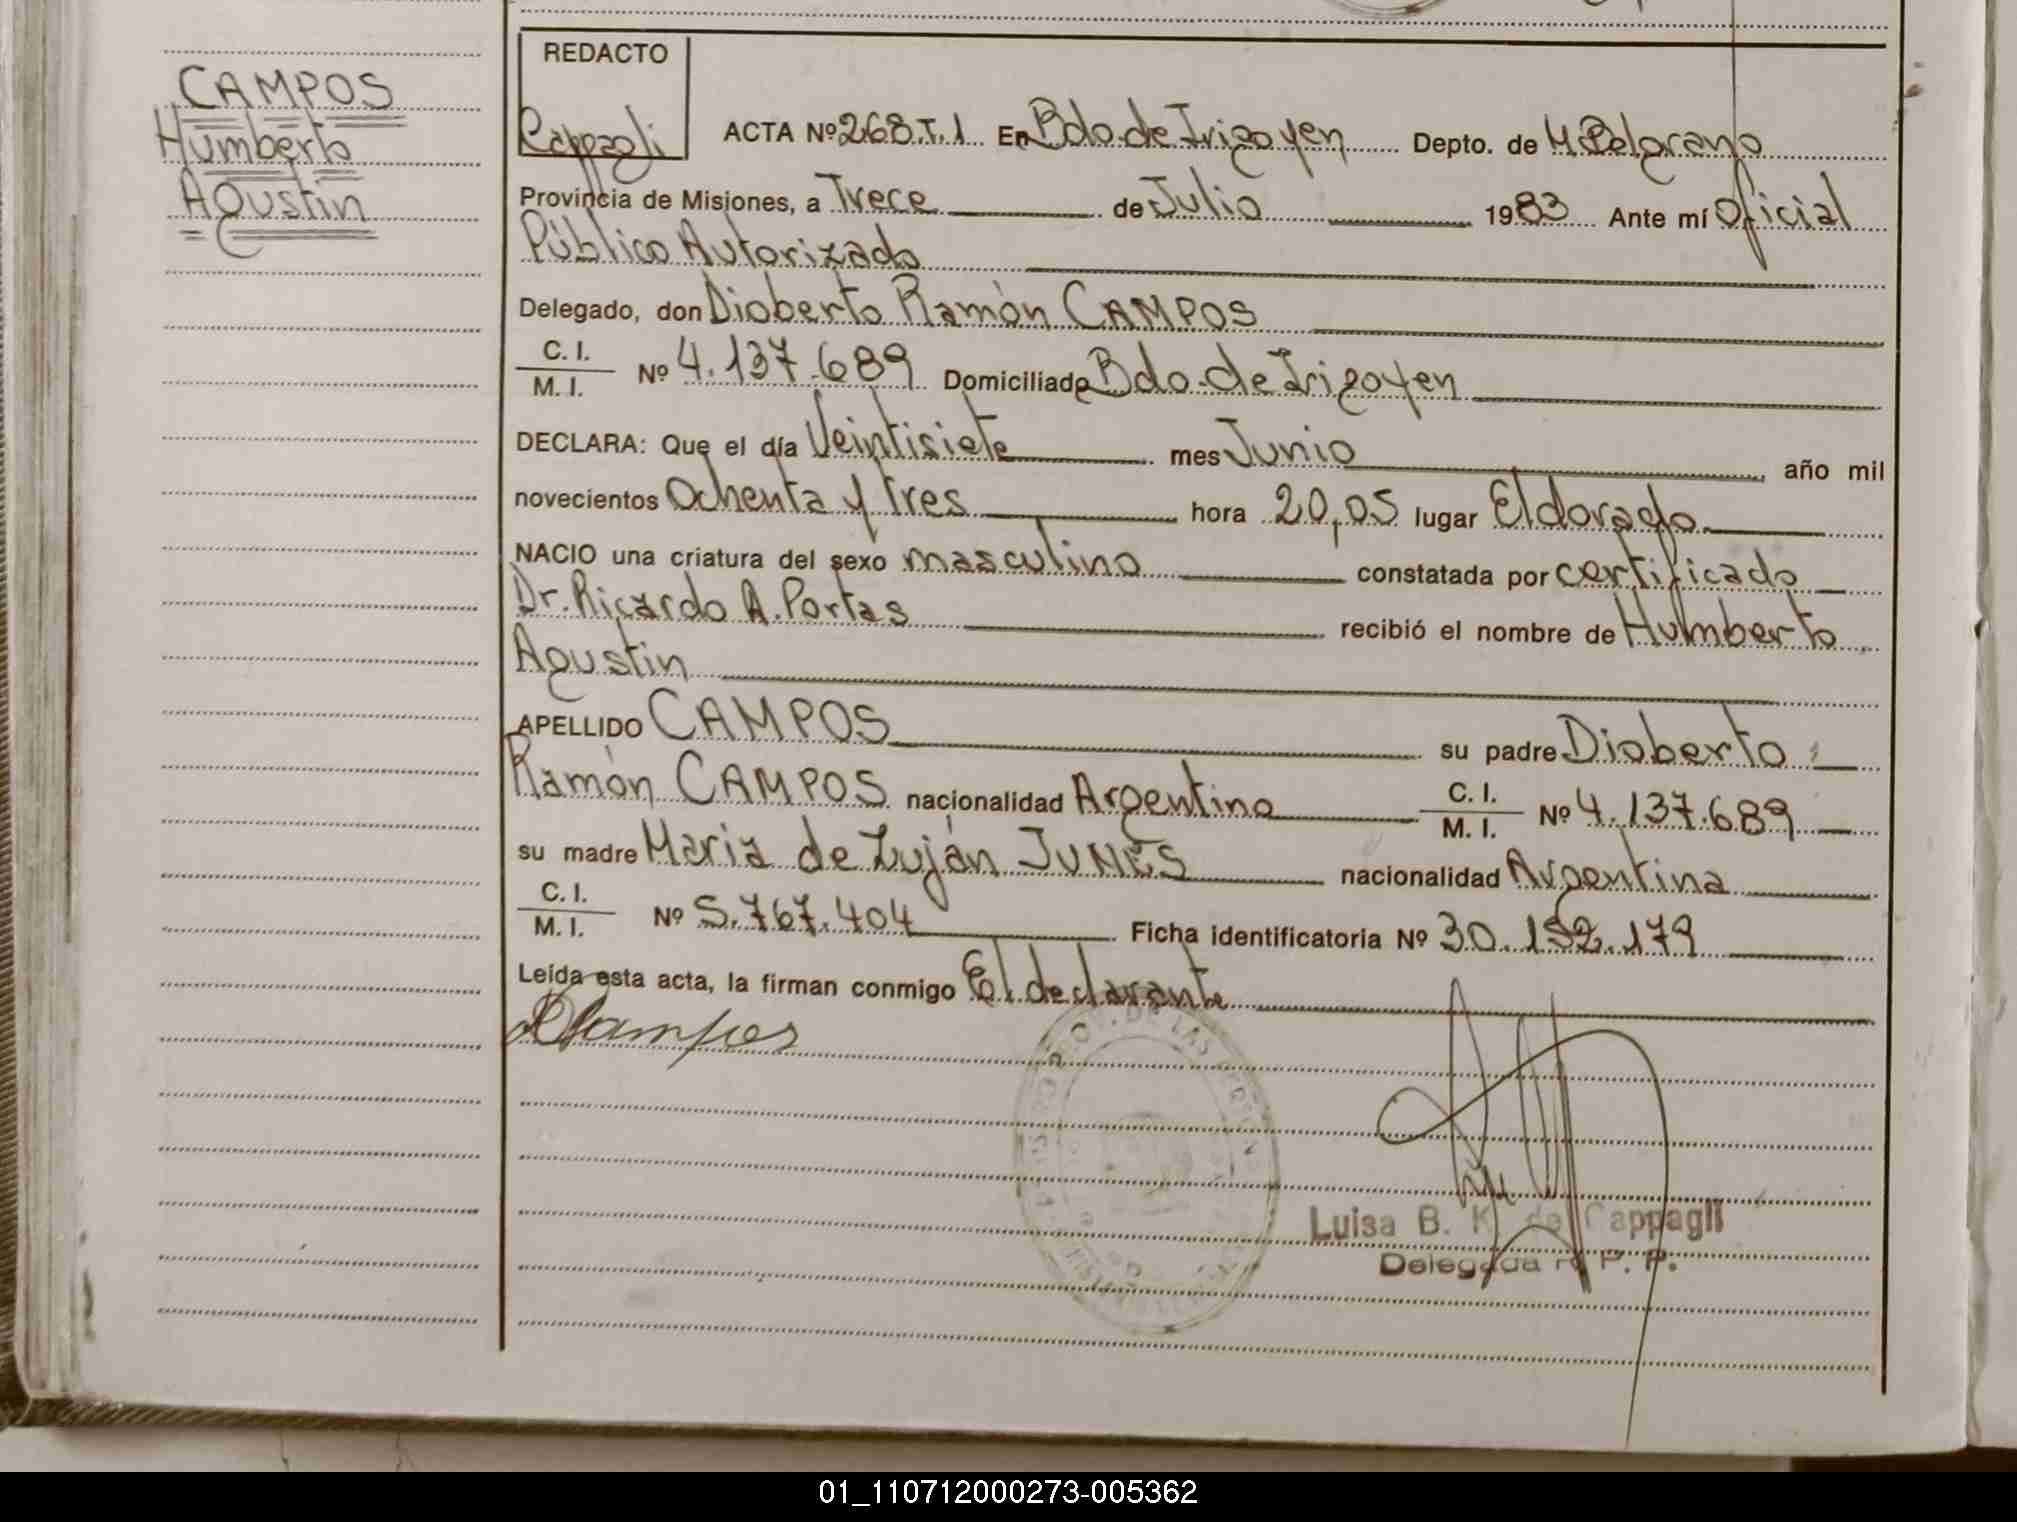 CAMPOS
Humberto
Agustin
REDACTO
Cappagli
ACTA Nº 268.T.1 En Bdo. de Irigoyen Depto. de M. Belgrano
Provincia de Misiones, a Trece de Julio 1983 Ante mí Oficial
Público Autorizado
Delegado, don Dioberto Ramón CAMPOS
C. I.
M. I. Nº 4.137.689 Domiciliado Bdo. de Irigoyen
DECLARA: Que el día Veintisiete mes Junio año mil
novecientos Ochenta y Tres hora 20,05 lugar Eldorado
NACIO una criatura del sexo masculino constatada por certificado
Dr. Ricardo A. Portas recibió el nombre de Humberto
Agustin
APELLIDO CAMPOS su padre Dioberto
Ramón CAMPOS nacionalidad Argentino C. I. M. I. Nº 4.137.689
su madre Maria de Luján JUNES nacionalidad Argentina
C. I.
M. I. Nº 5.767.404 Ficha identificatoria Nº 30.192.179
Leída esta acta, la firman conmigo El declarante
Campos
Luisa B. K. de Cappagli
Delegada R. P. P.
01_110712000273-005362